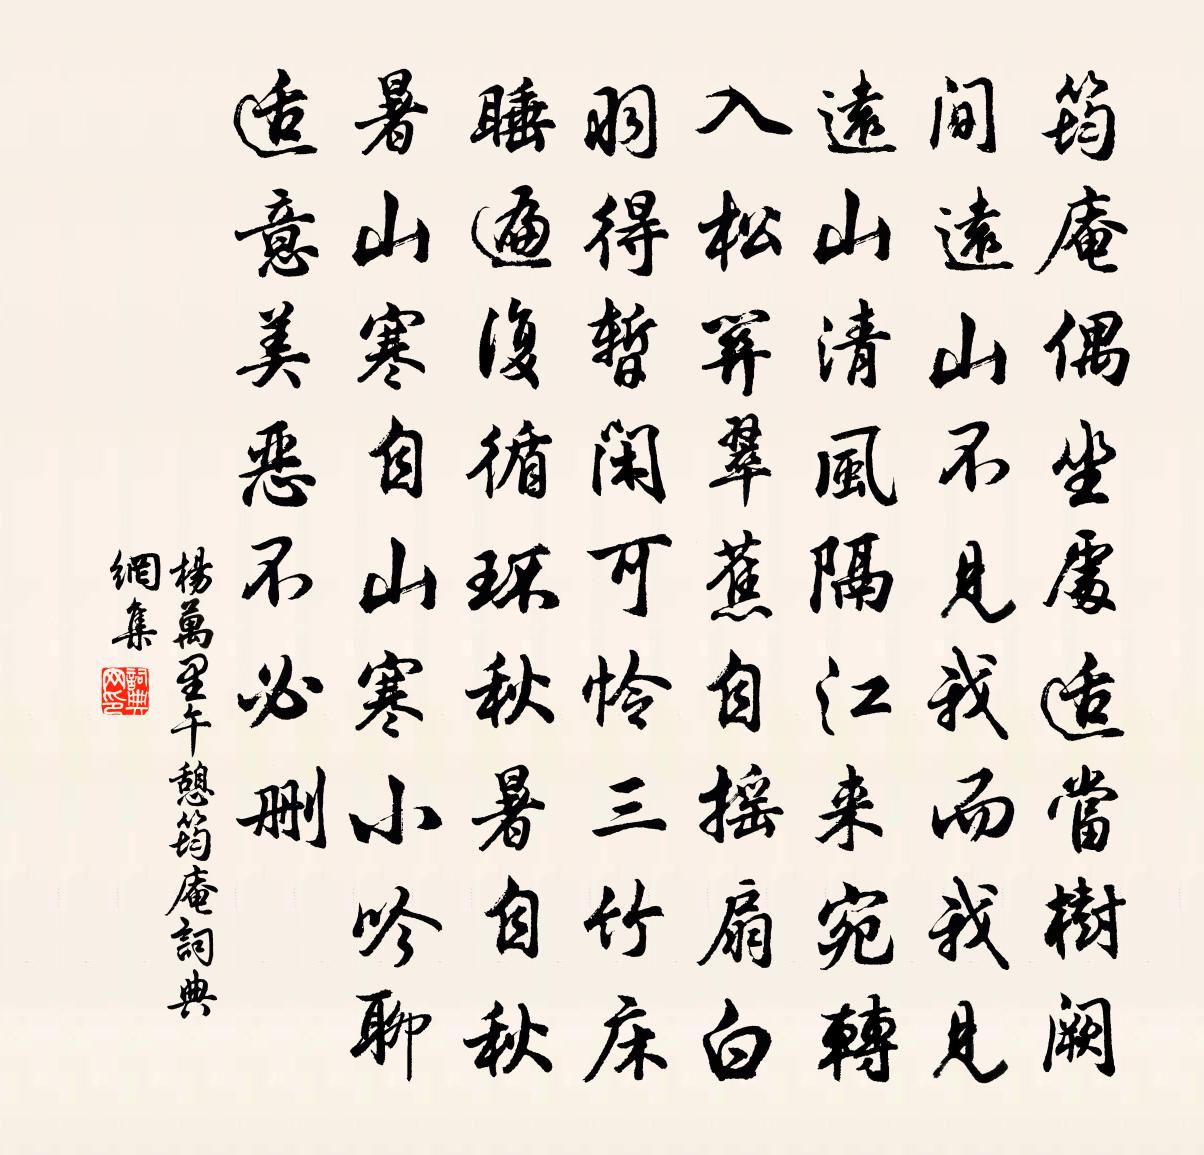 筠庵偶坐處适當樹闕
間遠山不見我而我見
遠山清風隔江来宛轉
入松羿翠蕉自摇扇白
羽得暫閑可怜三竹床
睡遍復循环秋暑自秋
暑山寒自山寒小吟聊
适意美恶不必删
楊萬里午憩筠庵詞典
網集
詞典
网印